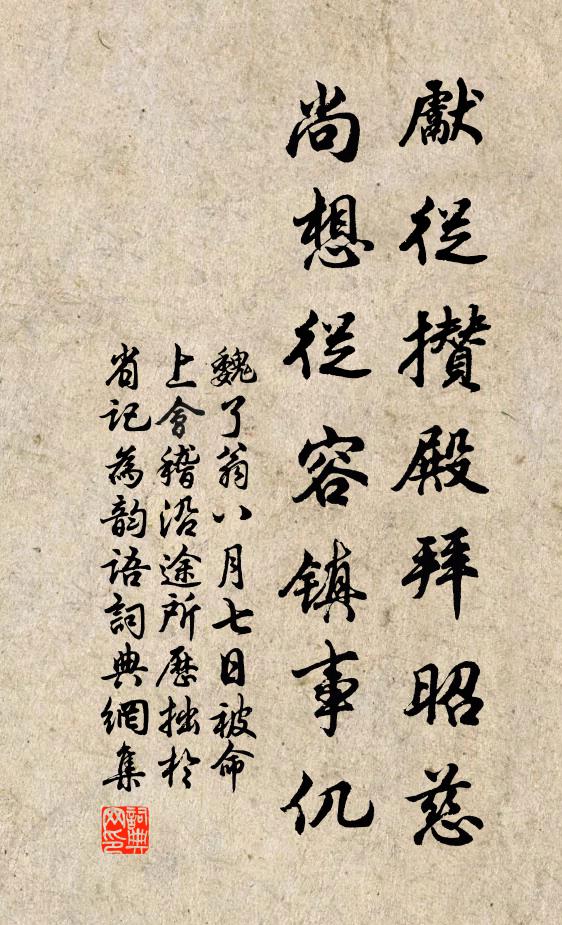 獻從攢殿拜昭慈
尚想從容镇事仉
魏了翁八月七日被命
上會稽沿途所歷拙於
省記為韵语詞典網集
詞典网印